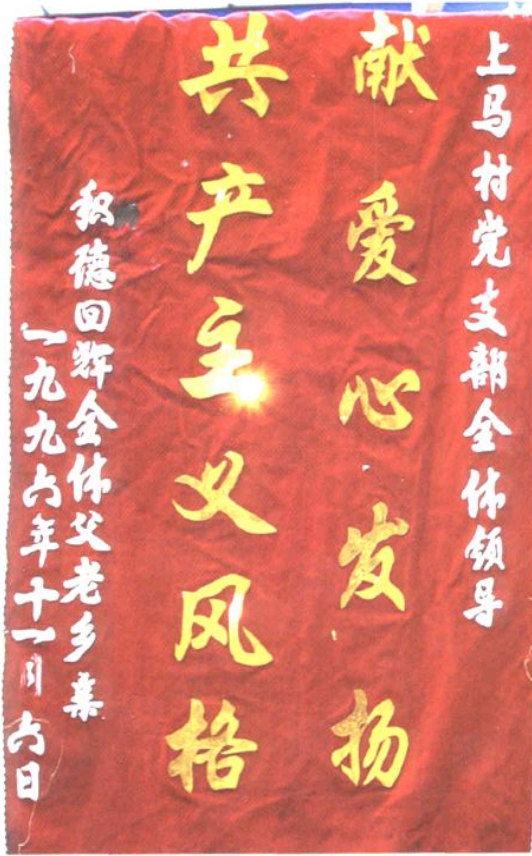 上马村党支部全体领导
献爱心发扬
共产主义风格
积德回辉全体父老乡亲
一九九六年十一月六日